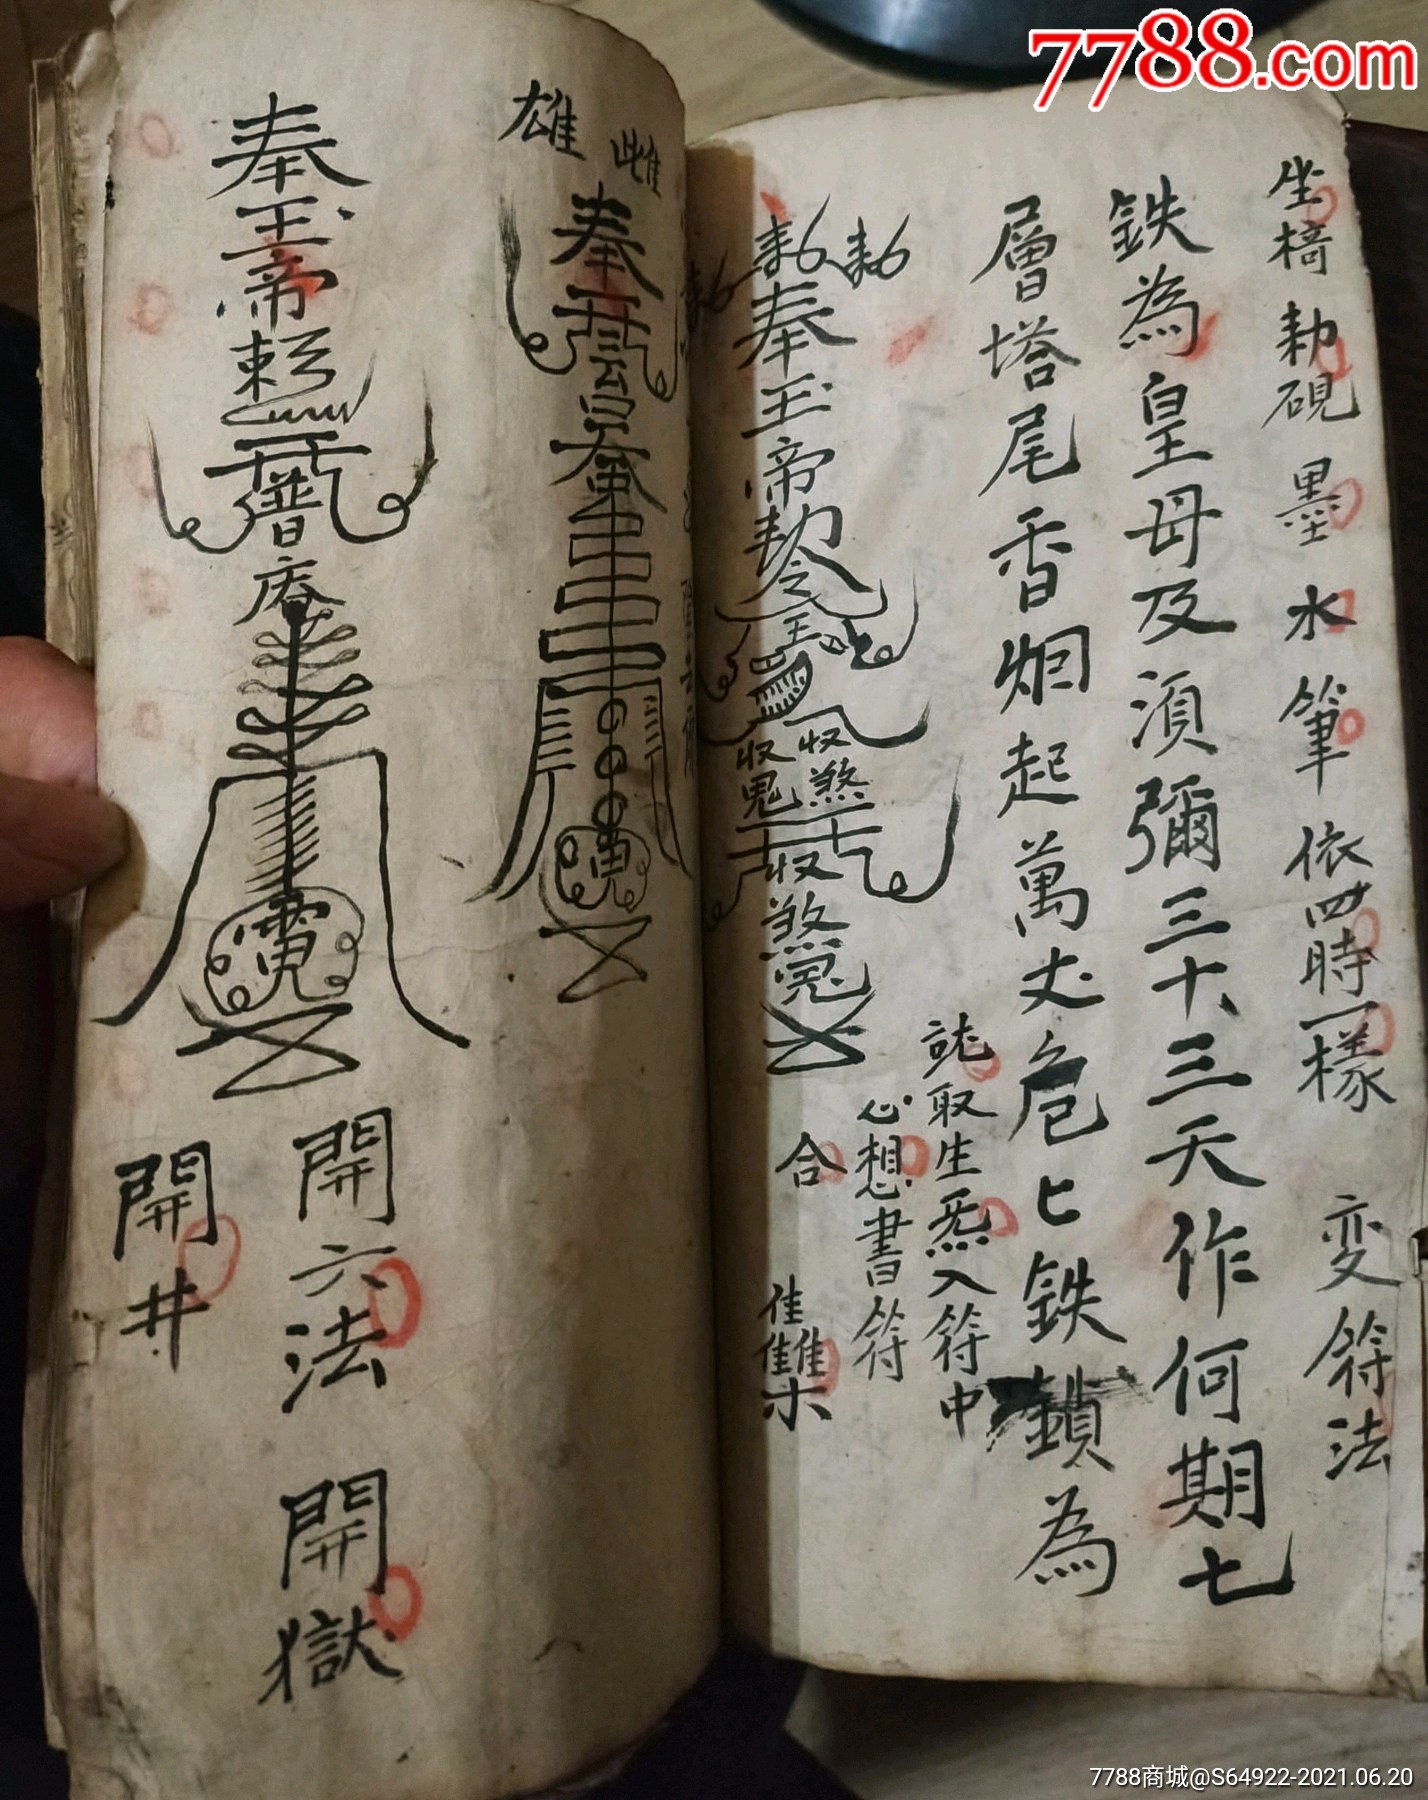 7788.com
坐椅 勅硯 墨 水 筆 依四時一樣 变符法
鉄為皇母及湏彌三十三天作何期七
層塔尾香烟起萬丈危匕鉄鎖為
取生炁入符中
心想書符
奉玉帝勅令
收鬼
收煞
收煞
合
雌
雄
奉
奉玉帝敕
普庵
開六法 開獄
開井
7788商城@S64922-2021.06.20